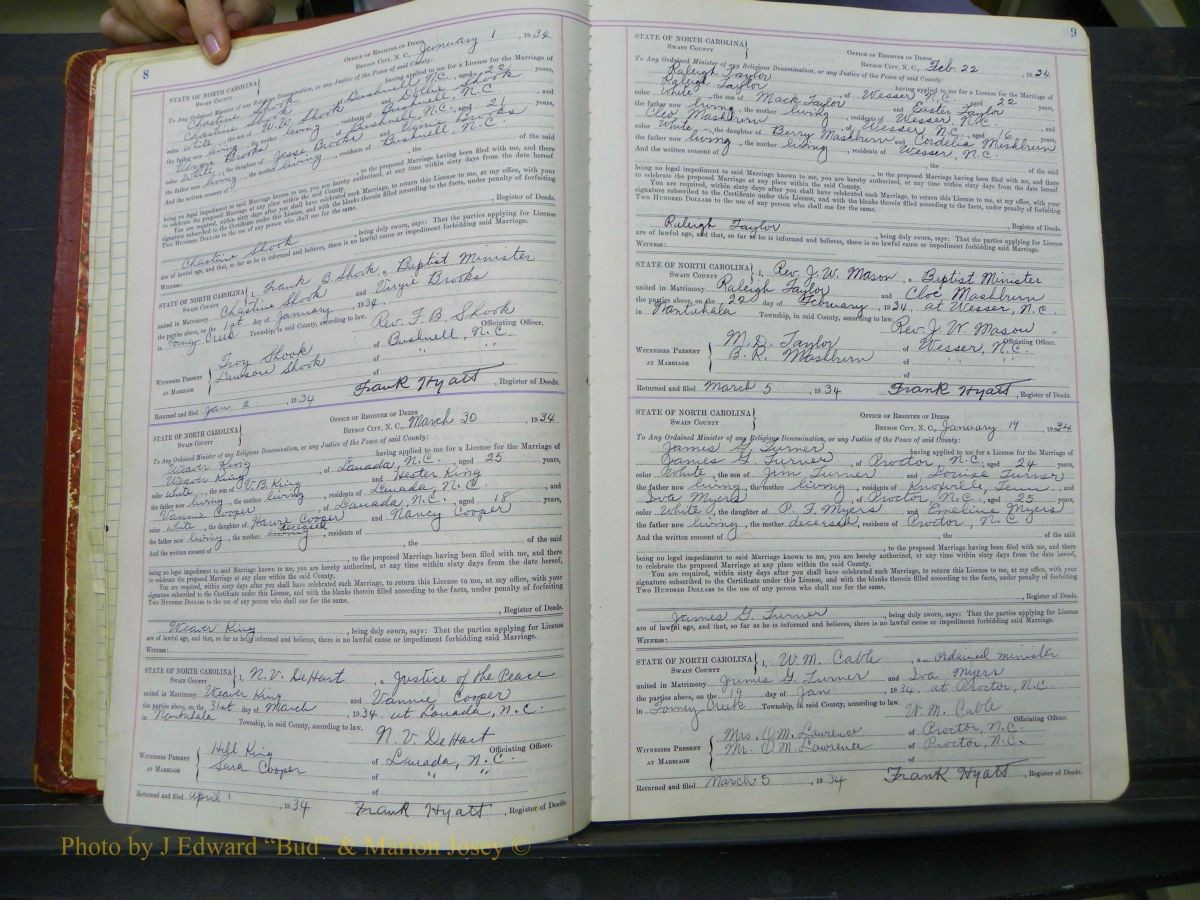 8
STATE OF NORTH CAROLINA
SWAIN COUNTY
OFFICE OF REGISTER OF DEEDS
BRYSON CITY, N. C., January 1, 1934
To Any Ordained Minister of any Religious Denomination, or any Justice of the Peace of said County:
Chastine Shook having applied to me for a License for the Marriage of
Chastine Shook, of Bushnell, N.C., aged 22 years,
color White, the son of W.W. Shook and Dollie Shook
the father now living, the mother living, residents of Bushnell, N.C. and
Virgie Brooks of Bushnell, N.C. aged 21 years,
color White, the daughter of Jesse Brooks and Brooks
the father now living, the mother living, residents of Bushnell, N.C.
And the written consent of , the of the said
, to the proposed Marriage having been filed with me, and there
being no legal impediment to said Marriage known to me, you are hereby authorized, at any time within sixty days from the date hereof,
to celebrate the proposed Marriage at any place within the said County.
You are required, within sixty days after you shall have celebrated such Marriage, to return this License to me, at my office, with your
signature subscribed to the Certificate under this License, and with the blanks therein filled according to the facts, under penalty of forfeiting
TWO HUNDRED DOLLARS to the use of any person who shall sue for the same.
, Register of Deeds.
Chastine Shook, being duly sworn, says: That the parties applying for License
are of lawful age, and that, so far as he is informed and believes, there is no lawful cause or impediment forbidding said Marriage.
WITNESS:
STATE OF NORTH CAROLINA
SWAIN COUNTY
I, Frank B Shook, a Baptist Minister
united in Matrimony Chastine Shook and Virgie Brooks
the parties above, on the 1st day of January, 1934
in Forney Creek Township, in said County, according to law.
Rev. F. B. Shook
Officiating Officer.
WITNESSES PRESENT AT MARRIAGE
Troy Shook of Bushnell, N.C.
Lawson Shook of " "
of
Returned and filed Jan 2, 1934 Frank Hyatt, Register of Deeds.
STATE OF NORTH CAROLINA
SWAIN COUNTY
OFFICE OF REGISTER OF DEEDS
BRYSON CITY, N. C., March 30, 1934
To Any Ordained Minister of any Religious Denomination, or any Justice of the Peace of said County:
Weaver King having applied to me for a License for the Marriage of
Weaver King, of Lauada, N.C., aged 25 years,
color White, the son of V.B. King and Hester King
the father now living, the mother living, residents of Lauada N.C. and
Vannie Cooper of Lauada, N.C., aged 18 years,
color White, the daughter of Cooper and Nancy Cooper
the father now living, the mother, residents of
And the written consent of , the of the said
, to the proposed Marriage having been filed with me, and there
being no legal impediment to said Marriage known to me, you are hereby authorized, at any time within sixty days from the date hereof,
to celebrate the proposed Marriage at any place within the said County.
You are required, within sixty days after you shall have celebrated such Marriage, to return this License to me, at my office, with your
signature subscribed to the Certificate under this License, and with the blanks therein filled according to the facts, under penalty of forfeiting
TWO HUNDRED DOLLARS to the use of any person who shall sue for the same.
, Register of Deeds.
Weaver King, being duly sworn, says: That the parties applying for License
are of lawful age, and that, so far as he is informed and believes, there is no lawful cause or impediment forbidding said Marriage.
WITNESS:
STATE OF NORTH CAROLINA
SWAIN COUNTY
I, N.V. DeHart, a Justice of the Peace
united in Matrimony Weaver King and Vannie Cooper
the parties above, on the 31st day of March, 1934, at Lauada, N.C.
in Nantahala Township, in said County, according to law.
N. V. DeHart
Officiating Officer.
WITNESSES PRESENT AT MARRIAGE
Hill King of Lauada, N.C.
Sara Cooper of " "
of
Returned and filed April 1, 1934 Frank Hyatt, Register of Deeds.
9
STATE OF NORTH CAROLINA
SWAIN COUNTY
OFFICE OF REGISTER OF DEEDS
BRYSON CITY, N. C., Feb. 22 1934
To Any Ordained Minister of any Religious Denomination, or any Justice of the Peace of said County:
Raleigh Taylor having applied to me for a License for the Marriage of
Raleigh Taylor, of Wesser N.C., aged 22 years,
color White, the son of Mack Taylor and Easter Taylor
the father now living, the mother living, residents of Wesser N.C. and
Cleo Mashburn of Wesser, N.C., aged 16 years,
color White, the daughter of Berry Mashburn and Cordelia Mashburn
the father now living, the mother living, residents of Wesser, N.C.
And the written consent of , the of the said
, to the proposed Marriage having been filed with me, and there
being no legal impediment to said Marriage known to me, you are hereby authorized, at any time within sixty days from the date hereof,
to celebrate the proposed Marriage at any place within the said County.
You are required, within sixty days after you shall have celebrated such Marriage, to return this License to me, at my office, with your
signature subscribed to the Certificate under this License, and with the blanks therein filled according to the facts, under penalty of forfeiting
TWO HUNDRED DOLLARS to the use of any person who shall sue for the same.
, Register of Deeds.
Raleigh Taylor, being duly sworn, says: That the parties applying for License
are of lawful age, and that, so far as he is informed and believes, there is no lawful cause or impediment forbidding said Marriage.
WITNESS:
STATE OF NORTH CAROLINA
SWAIN COUNTY
I, Rev. J. W. Mason, a Baptist Minister
united in Matrimony Raleigh Taylor and Cloe Mashburn
the parties above, on the 22 day of February, 1934, at Wesser, N.C.
in Nantahala Township, in said County, according to law.
Rev. J. W. Mason
Officiating Officer.
WITNESSES PRESENT AT MARRIAGE
M. D. Taylor of Wesser, N.C.
B. R. Mashburn of " "
of
Returned and filed March 5, 1934 Frank Hyatt, Register of Deeds.
STATE OF NORTH CAROLINA
SWAIN COUNTY
OFFICE OF REGISTER OF DEEDS
BRYSON CITY, N. C., January 19, 1934
To Any Ordained Minister of any Religious Denomination, or any Justice of the Peace of said County:
James G. Turner having applied to me for a License for the Marriage of
James G. Turner, of Proctor, N.C., aged 24 years,
color White, the son of Jim Turner and Louise Turner
the father now living, the mother living, residents of Knoxville, Tenn. and
Iva Myers of Proctor, N.C., aged 25 years,
color White, the daughter of P. F. Myers and Emeline Myers
the father now living, the mother deceased, residents of Proctor, N.C
And the written consent of , the of the said
, to the proposed Marriage having been filed with me, and there
being no legal impediment to said Marriage known to me, you are hereby authorized, at any time within sixty days from the date hereof,
to celebrate the proposed Marriage at any place within the said County.
You are required, within sixty days after you shall have celebrated such Marriage, to return this License to me, at my office, with your
signature subscribed to the Certificate under this License, and with the blanks therein filled according to the facts, under penalty of forfeiting
TWO HUNDRED DOLLARS to the use of any person who shall sue for the same.
, Register of Deeds.
James G. Turner, being duly sworn, says: That the parties applying for License
are of lawful age, and that, so far as he is informed and believes, there is no lawful cause or impediment forbidding said Marriage.
WITNESS:
STATE OF NORTH CAROLINA
SWAIN COUNTY
I, W.M. Cable, an ordained minister
united in Matrimony James G. Turner and Iva Myers
the parties above, on the 19 day of Jan, 1934, at Proctor, N.C.
in Forney Creek Township, in said County, according to law.
W. M. Cable
Officiating Officer.
WITNESSES PRESENT AT MARRIAGE
Mrs. O.M. Lawrence of Proctor, N.C.
Mr. O.M. Lawrence of Proctor, N.C.
of
Returned and filed March 5, 1934 Frank Hyatt, Register of Deeds.
Photo by J Edward "Bud" & Marion Josey ©